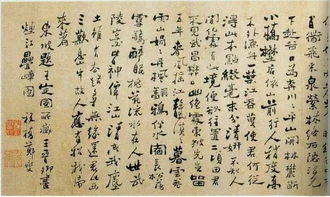 百道飛來泉縈林絡石隱復見
下赴谷口為奔川川平山開林麓斷
小橋野店依山前行人稍度喬
木外漁舟一葉江吞天使君何從
得此本點綴毫末分清妍不知人
間何處有此境徑欲往置二頃田君
不見武昌樊口幽絕處東坡先生留
五年春風搖江天漠漠暮雲卷
雨山娟娟丹楓翻鴉伴水宿長松落
雪驚醉眠桃花流水在人世武
陵豈必皆神僊江山清空我塵
土雖有去路尋無緣還君此畫
三歎息山中故人應有招我歸
來篇
東坡題王定國所藏王晉卿畫
煙江疊嶂圖 板橋鄭燮